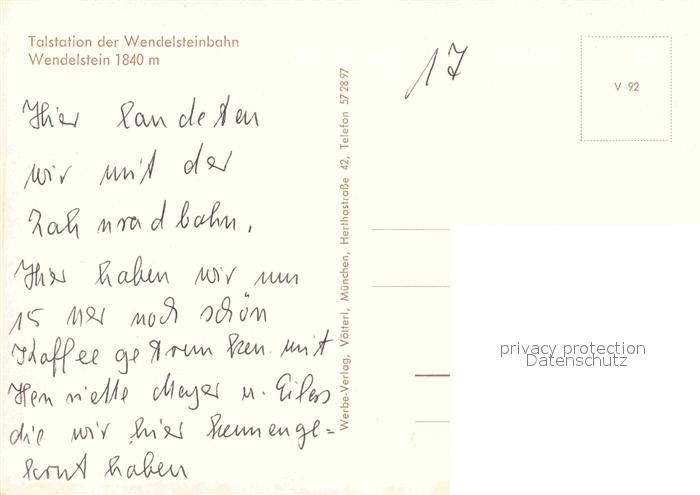 Talstation der Wendelsteinbahn
Wendelstein 1840 m
17
V 92
Hier landeten
wir mit der
Zahnradbahn.
Hier haben wir um
15 Uer noch schön
Kaffee getrunken mit
Henriette Mayer u. Eilers
die wir hier kennenge=
lernt haben
Werbe-Verlag, Vötterl, München, Herthastraße 42, Telefon 57 28 97
privacy protection
Datenschutz